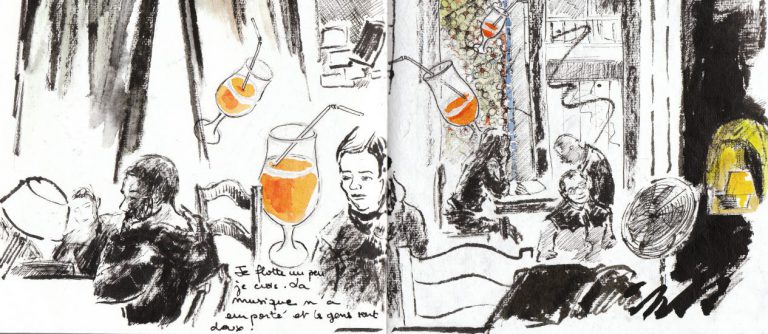 Je flotte un peu
je crois. La
musique m'a
emporté et les gens sont
doux!